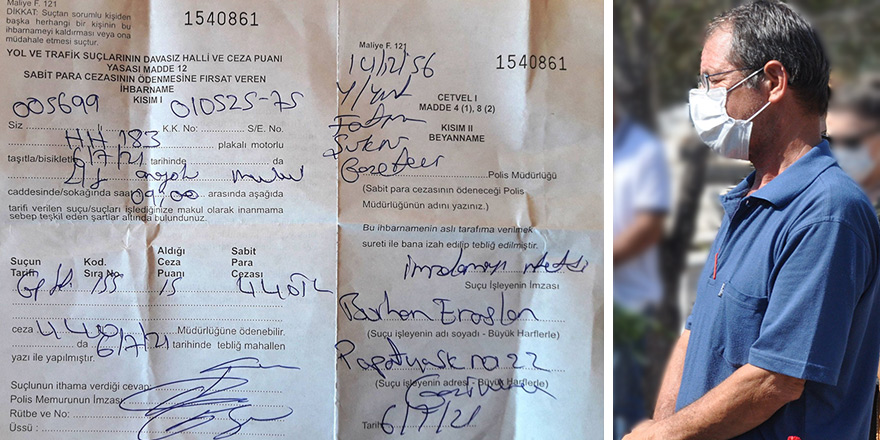 Maliye F. 121
DİKKAT: Suçtan sorumlu kişiden
başka herhangi bir kişinin bu
ihbarnameyi kaldırması veya ona
müdahale etmesi suçtur.
1540861
YOL VE TRAFİK SUÇLARININ DAVASIZ HALLİ VE CEZA PUANI
YASASI MADDE 12
SABİT PARA CEZASININ ÖDENMESİNE FIRSAT VEREN
İHBARNAME
KISIM I
005699 010525-75
Siz K.K. No: S/E. No.
HH 183 plakalı motorlu
taşıtla/bisikletle 6/7/21 tarihinde da
caddesinde/sokağında saat 09,00 arasında aşağıda
tarifi verilen suçu/suçları işlediğinize makul olarak inanmama
sebep teşkil eden şartlar altında bulundunuz.
Suçun Kod. Aldığı Sabit
Tarifi Sıra No. Ceza Para
Puanı Cezası
155 15 440TL
ceza 440 Müdürlüğüne ödenebilir.
da 6/7/21 tarihinde tebliğ mahallen
yazı ile yapılmıştır.
Suçlunun ithama verdiği cevap:
Polis Memurunun İmzası
Rütbe ve No:
Üssü :
Maliye F. 121
1540861
14/2/56
CETVEL I
MADDE 4 (1), 8 (2)
KISIM II
BEYANNAME
Polis Müdürlüğü
(Sabit para cezasının ödeneceği Polis
Müdürlüğünün adını yazınız).
Bu ihbarnamenin aslı tarafıma verilmek
sureti ile bana izah edilip tebliğ edilmiştir.
Suçu İşleyenin İmzası
Burhan Eraslan
(Suçu işleyenin adı soyadı - Büyük Harflerle)
Papatya sk no 22
(Suçu işleyenin adresi - Büyük Harflerle)
Tarih 6/7/21